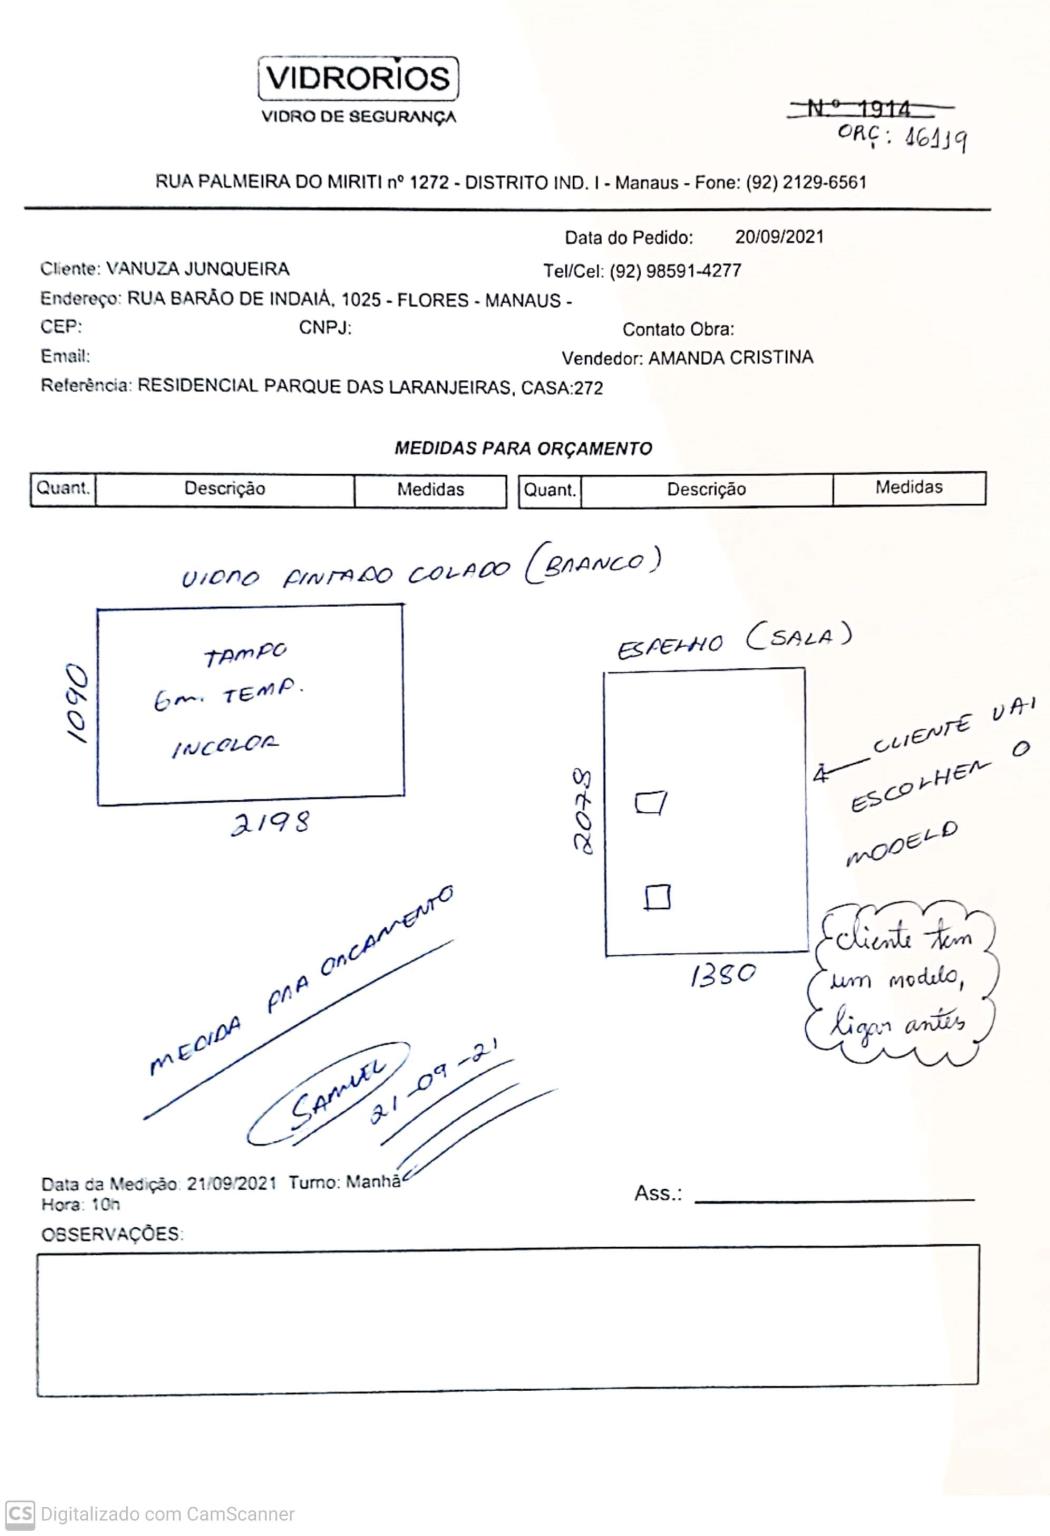 VIDRORIOS
VIDRO DE SEGURANÇA
N.º 1914
ORÇ: 16119
RUA PALMEIRA DO MIRITI nº 1272 - DISTRITO IND. I - Manaus - Fone: (92) 2129-6561
Data do Pedido: 20/09/2021
Cliente: VANUZA JUNQUEIRA Tel/Cel: (92) 98591-4277
Endereço: RUA BARÃO DE INDAIÁ, 1025 - FLORES - MANAUS -
CEP: CNPJ: Contato Obra:
Email: Vendedor: AMANDA CRISTINA
Referência: RESIDENCIAL PARQUE DAS LARANJEIRAS, CASA:272
MEDIDAS PARA ORÇAMENTO
Quant. Descrição Medidas Quant. Descrição Medidas
VIDRO PINTADO COLADO (BRANCO)
TAMPO
6m. TEMP.
INCOLOR
1090
2198
ESPELHO (SALA)
2078
1380
CLIENTE VAI
ESCOLHER O
MODELO
cliente tem
um modelo,
ligar antes
MEDIDA PRA ORCAMENTO
SAMUEL
21-09-21
Data da Medição: 21/09/2021 Turno: Manhã
Hora: 10h
Ass.:
OBSERVAÇÕES:
CS Digitalizado com CamScanner